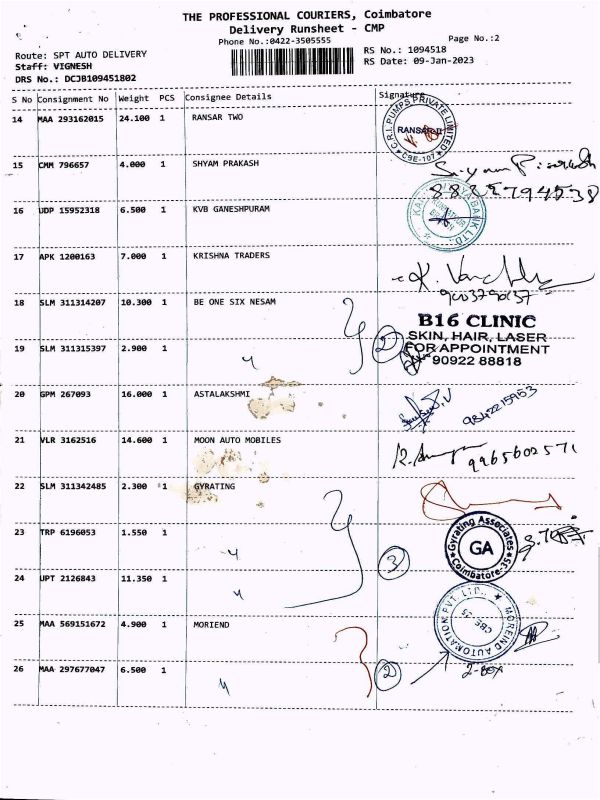 THE PROFESSIONAL COURIERS, Coimbatore
Delivery Runsheet - CMP
Phone No.:0422-3505555
Page No.:2
Route: SPT AUTO DELIVERY
RS No.: 1094518
Staff: VIGNESH
RS Date: 09-Jan-2023
DRS No.: DCJB109451802
S No Consignment No Weight PCS Consignee Details Signature
14 MAA 293162015 24.100 1 RANSAR TWO
C.R.I. PUMPS PRIVATE LIMITED
RANSAR-II
CSE-107
15 CMM 796657 4.000 1 SHYAM PRAKASH
16 UDP 15952318 6.500 1 KVB GANESHPURAM
BANK LTD.,
17 APK 1200163 7.000 1 KRISHNA TRADERS
18 SLM 311314207 10.300 1 BE ONE SIX NESAM
2
B16 CLINIC
SKIN, HAIR, LASER
FOR APPOINTMENT
90922 88818
19 SLM 311315397 2.900 1
20 GPM 267093 16.000 1 ASTALAKSHMI
9842215953
21 VLR 3162516 14.600 1 MOON AUTO MOBILES
9965602571
22 SLM 311342485 2.300 1 GYRATING
23 TRP 6196053 1.550 1
Gyrating Associates
GA
Coimbatore-35
24 UPT 2126843 11.350 1
3
25 MAA 569151672 4.900 1 MORIEND
MOREIND AUTOMATION PVT. LTD.,
CBE-35
26 MAA 297677047 6.500 1
2